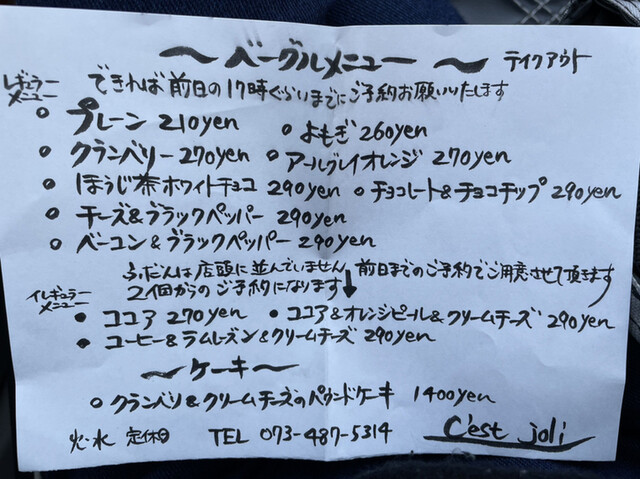 〜ベーグルメニュー〜 テイクアウト
レギュラーメニュー
できれば前日の17時ぐらいまでにご予約お願いいたします
○プレーン 210yen ○よもぎ 260yen
○クランベリー 270yen ○アールグレイオレンジ 270yen
○ほうじ茶ホワイトチョコ 290yen ○チョコレート&チョコチップ 290yen
○チーズ&ブラックペッパー 290yen
○ベーコン&ブラックペッパー 290yen
ふだんは店頭に並んでいません 前日までのご予約でご用意させて頂きます
2個からのご予約になります↓
イレギュラーメニュー
○ココア 270yen ○ココア&オレンジピール&クリームチーズ 290yen
○コーヒー&ラムレーズン&クリームチーズ 290yen
〜ケーキ〜
○クランベリ&クリームチーズのパウンドケーキ 1400yen
火・水 定休日 TEL 073-487-5314 C'est joli